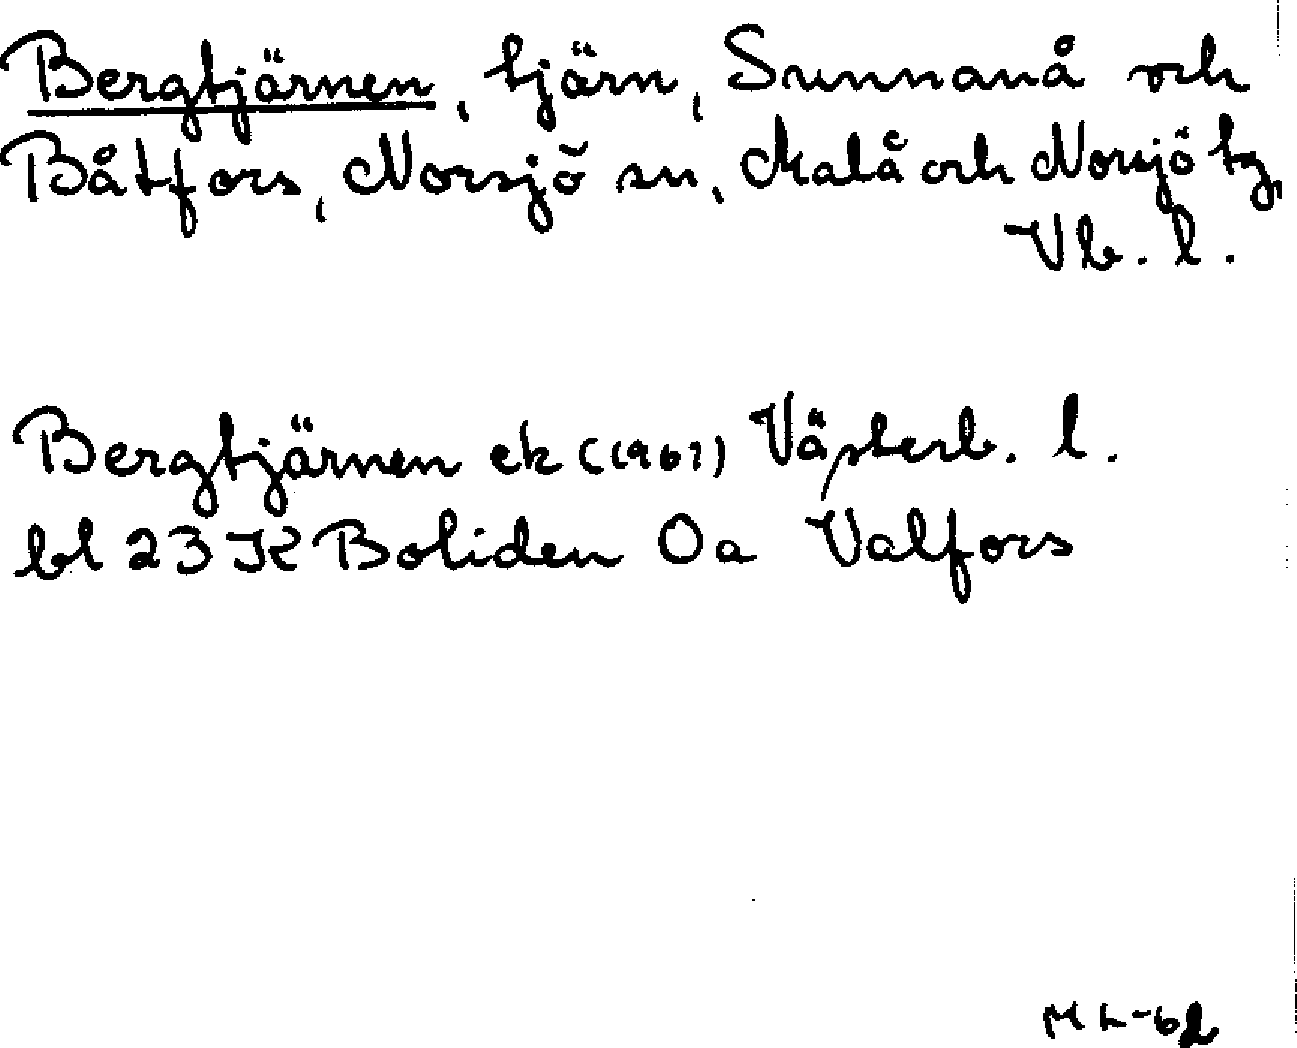 Bergtjärnen, tjärn, Sunnanå och
Båtfors, Norsjö sn, Malå och Norsjö tg,
Vb. l.
Bergtjärnen ek (1967) Västerb. l.
bl 23 K Boliden 0a Valfors